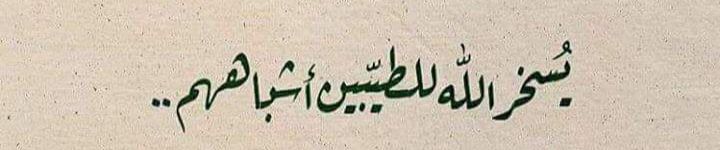 يُسخر الله للطيّبين أشباههم..